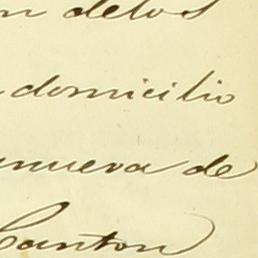 n delos
domicilio
nueva de
Canton